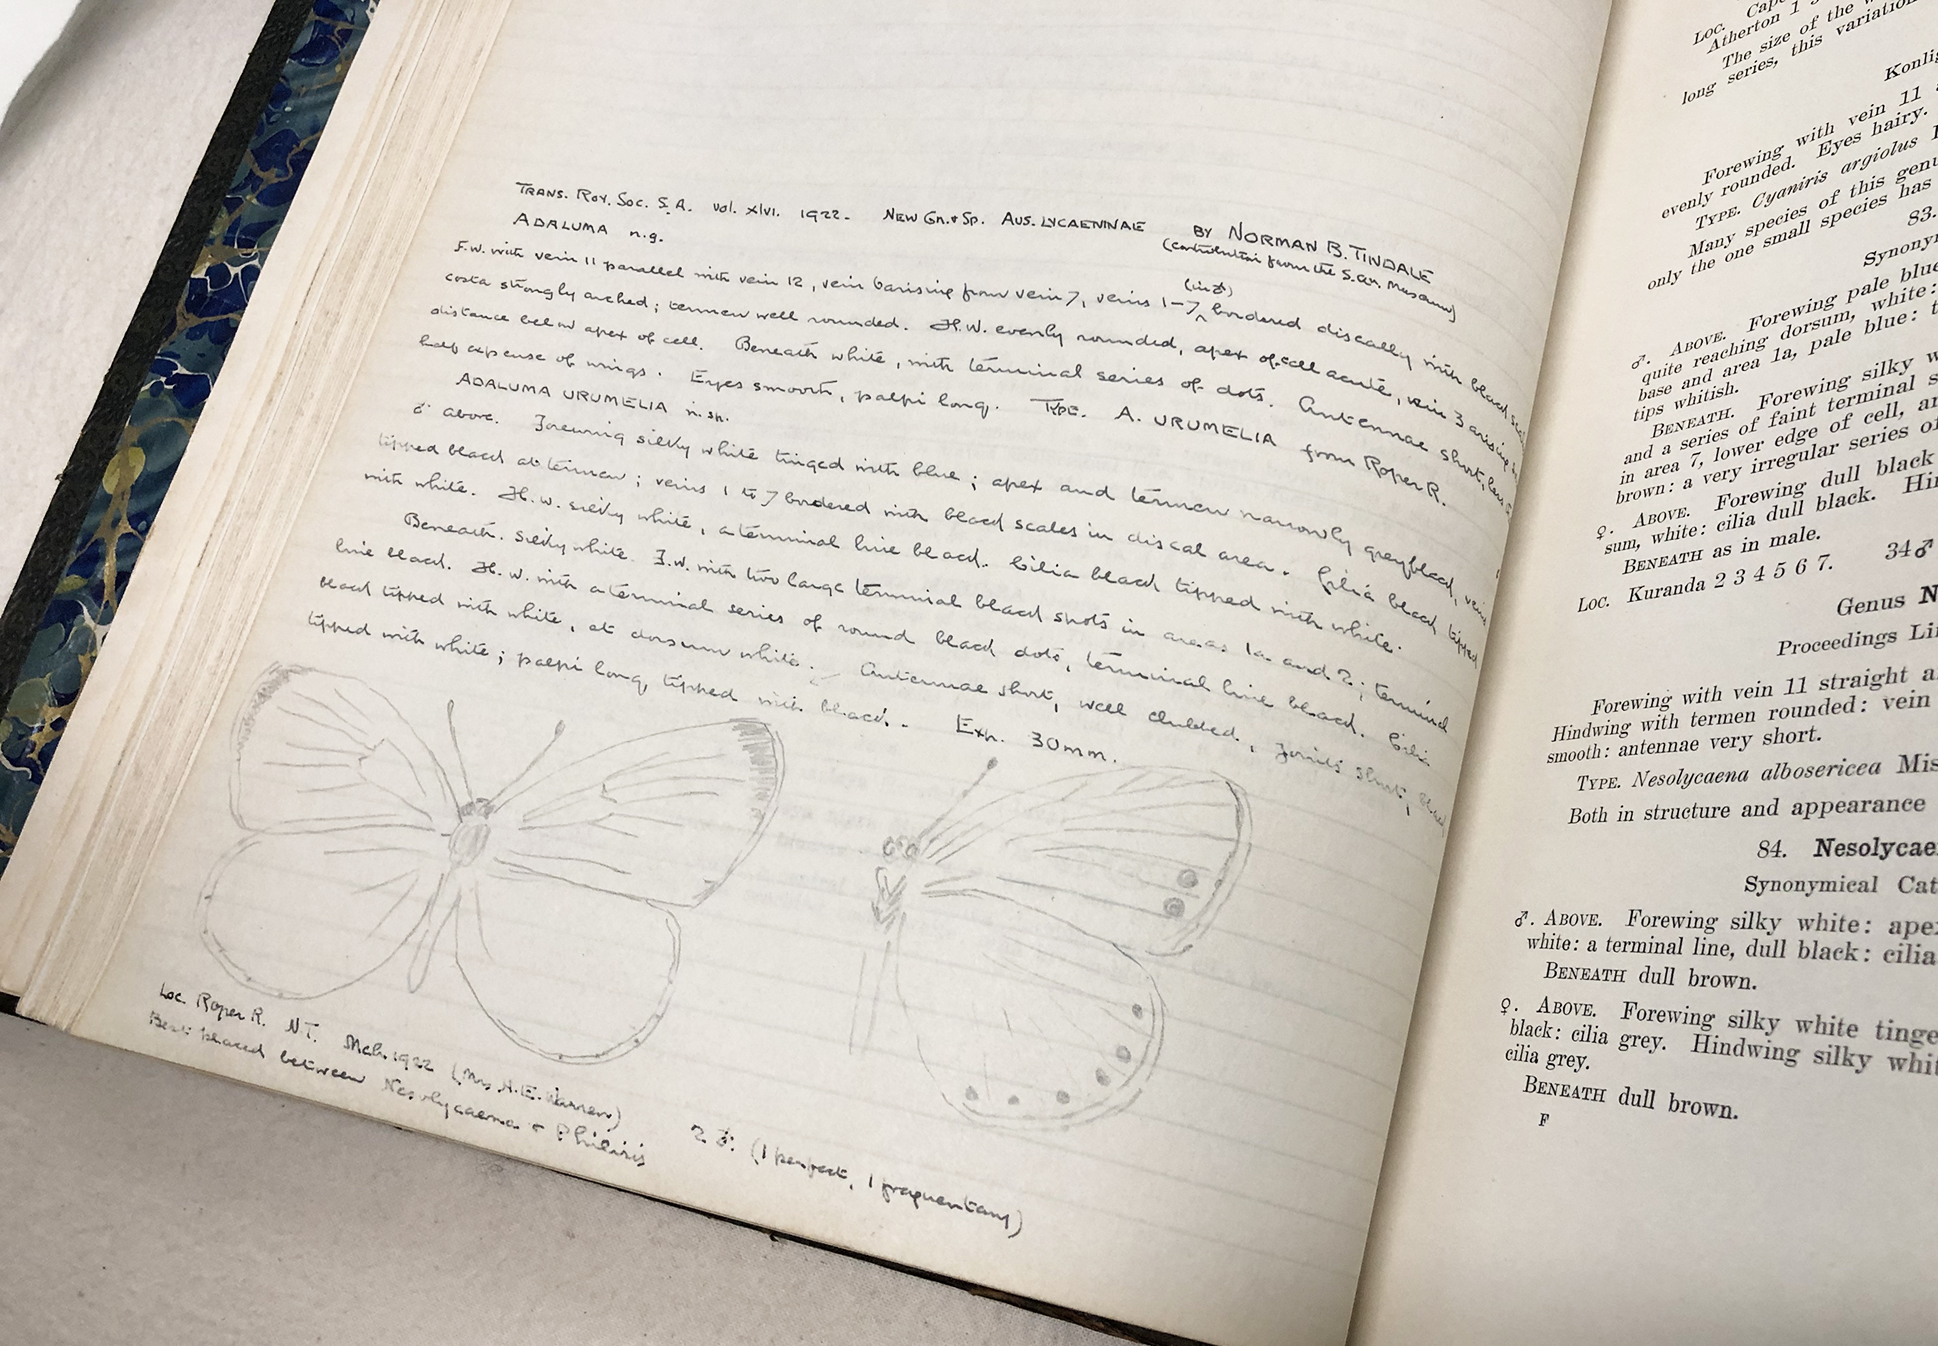 TRANS. ROY. SOC. S.A. Vol. XLVI. 1922. NEW GN. & SP. AUS. LYCAENINAE BY NORMAN B. TINDALE
(contribution from the S. Aus. Museum)
ADALUMA n.g.
F.W. with vein 11 parallel with vein 12, vein 6 arising from vein 7, veins 1-7 (in ♂) bordered discally with black
costa strongly arched; termen well rounded. H.W. evenly rounded, apex of cell acute, vein 3 arising
distance below apex of cell. Beneath white, with terminal series of dots. Antennae short, less
half expense of wings. Eyes smooth, palpi long. TYPE. A. URUMELIA from Roper R.
ADALUMA URUMELIA n.sp.
♂ above. Forewing silky white tinged with blue; apex and termen narrowly greyblack, veins
tipped black at termen; veins 1 to 7 bordered with black scales in discal area. Cilia black tipped
with white. H.W. silky white, a terminal line black. Cilia black tipped with white.
Beneath. Silky white. F.W. with two large terminal black spots in areas 1a and 2; terminal
line black. H.W. with a terminal series of round black dots, terminal line black. Cilia
black tipped with white, at dorsum white. Antennae short, well clubbed, joints short, black
tipped with white; palpi long, tipped with black. Exp. 30mm.
Loc. Roper R. N.T. Mch. 1922 (Mrs H.E. Warren)
Best placed between Nesolycaena & Philiris
2 ♂: (1 perfect, 1 fragmentary)
Loc. Cape
Atherton 1
The size of the
long series, this variation
Konlig
Forewing with vein 11
evenly rounded. Eyes hairy.
TYPE. Cyaniris argiolus
Many species of this genu
only the one small species has
83.
Synonym
♂. ABOVE. Forewing pale blue
quite reaching dorsum, white:
base and area 1a, pale blue: t
tips whitish.
BENEATH. Forewing silky w
and a series of faint terminal s
in area 7, lower edge of cell, an
brown: a very irregular series of
♀. ABOVE. Forewing dull black
sum, white: cilia dull black. Hin
BENEATH as in male.
Loc. Kuranda 2 3 4 5 6 7. 34♂
Genus N
Proceedings Lin
Forewing with vein 11 straight a
Hindwing with termen rounded: vein
smooth: antennae very short.
TYPE. Nesolycaena albosericea Mis
Both in structure and appearance
84. Nesolycae
Synonymical Cat
♂. ABOVE. Forewing silky white: ape
white: a terminal line, dull black: cilia
BENEATH dull brown.
♀. ABOVE. Forewing silky white tinge
black: cilia grey. Hindwing silky whit
cilia grey.
BENEATH dull brown.
F